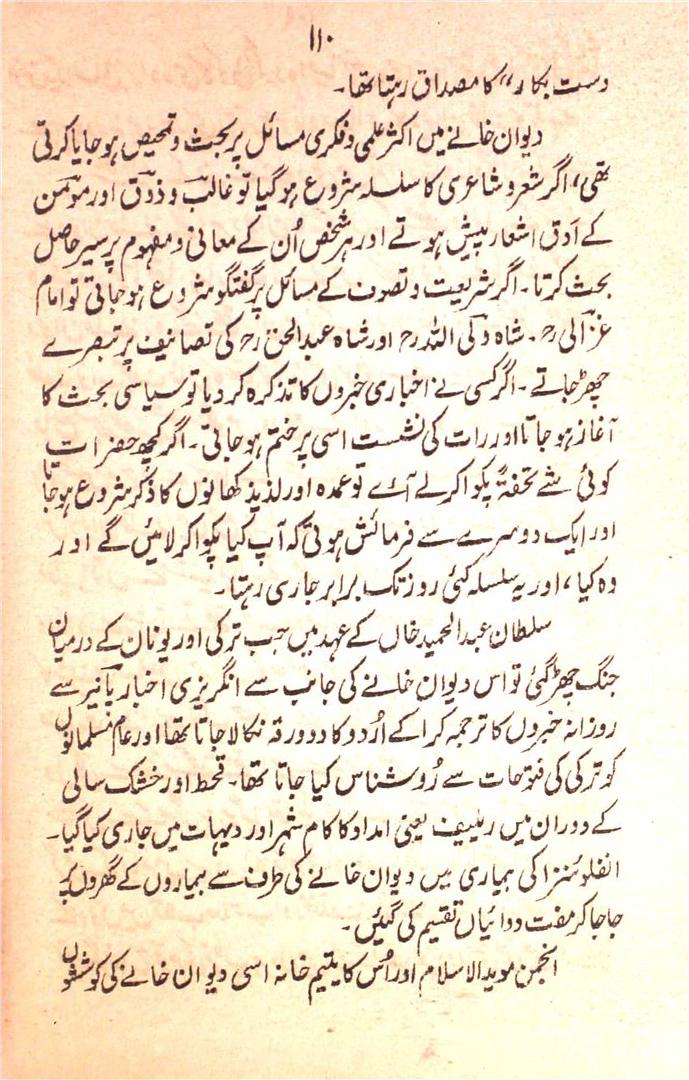 ۱۱۰
دست بکار“ کا مصداق رہتا تھا۔
دیوان خانے میں اکثر علمی و فکری مسائل پر بحث و تمحیص ہو جایا کرتی
تھی، اگر شعر و شاعری کا سلسلہ شروع ہو گیا تو غالبؔ و ذوقؔ اور مومنؔ
کے اَدق اشعار پیش ہوتے اور ہر شخص اُن کے معانی و مفہوم پر سیر حاصل
بحث کرتا۔ اگر شریعت و تصوف کے مسائل پر گفتگو شروع ہو جاتی تو امام
غزالیؒ۔ شاہ ولی اللہؒ اور شاہ عبدالحقؒ کی تصانیف پر تبصرے
چھڑ جاتے۔ اگر کسی نے اخباری خبروں کا تذکرہ کر دیا تو سیاسی بحث کا
آغاز ہو جاتا اور رات کی نشست اسی پر ختم ہو جاتی۔ اگر کچھ حضرات
کوئی شے تحفۃً پکوا کر لے آئے تو عمدہ اور لذیذ کھانوں کا ذکر شروع ہو جاتا
اور ایک دوسرے سے فرمائش ہوتی کہ آپ کیا پکوا کر لائیں گے اور
وہ کیا، اور یہ سلسلہ کئی روز تک برابر جاری رہتا۔
سلطان عبدالحمید خاں کے عہد میں جب ترکی اور یونان کے درمیان
جنگ چھڑ گئی تو اس دیوان خانے کی جانب سے انگریزی اخبار پانیر سے
روزانہ خبروں کا ترجمہ کرا کے اُردو کا دو ورقہ نکالا جاتا تھا اور عام مسلمانوں
کو ترکی کی فتوحات سے رُوشناس کیا جاتا تھا۔ قحط اور خشک سالی
کے دوران میں ریلیف یعنی امداد کا کام شہر اور دیہات میں جاری کیا گیا۔
انفلوئنزا کی بیماری میں دیوان خانے کی طرف سے بیماروں کے گھروں پر
جا جا کر مفت دوائیاں تقسیم کی گئیں۔
انجمن موید الاسلام اور اُس کا یتیم خانہ اسی دیوان خانے کی کوششوں